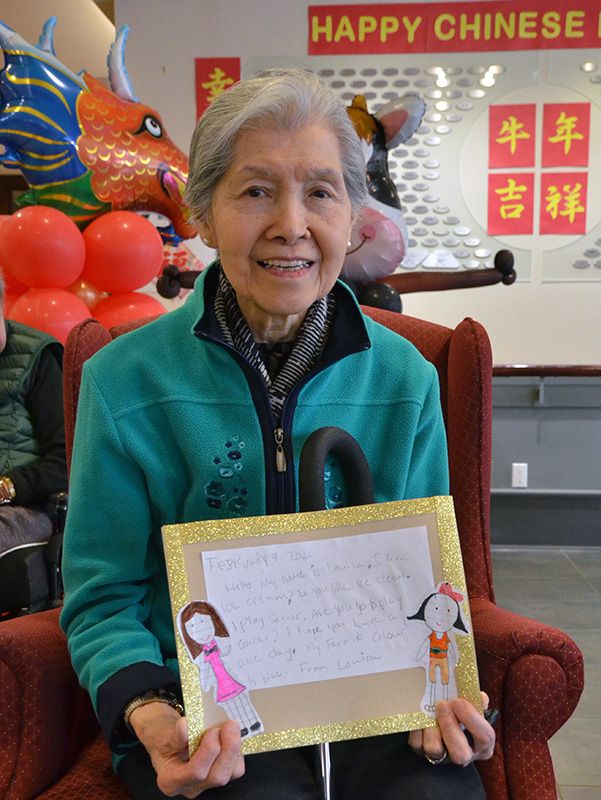 HAPPY CHINESE
幸
牛年
吉祥
FEBRUARY 4 2021
Hello My name is Louisa. I like
ice cream? Do you like ice cream.
I play soccer, Are you go to play
soccer? I hope you have a
nice day. My Favorite colour
is blue. From Louisa